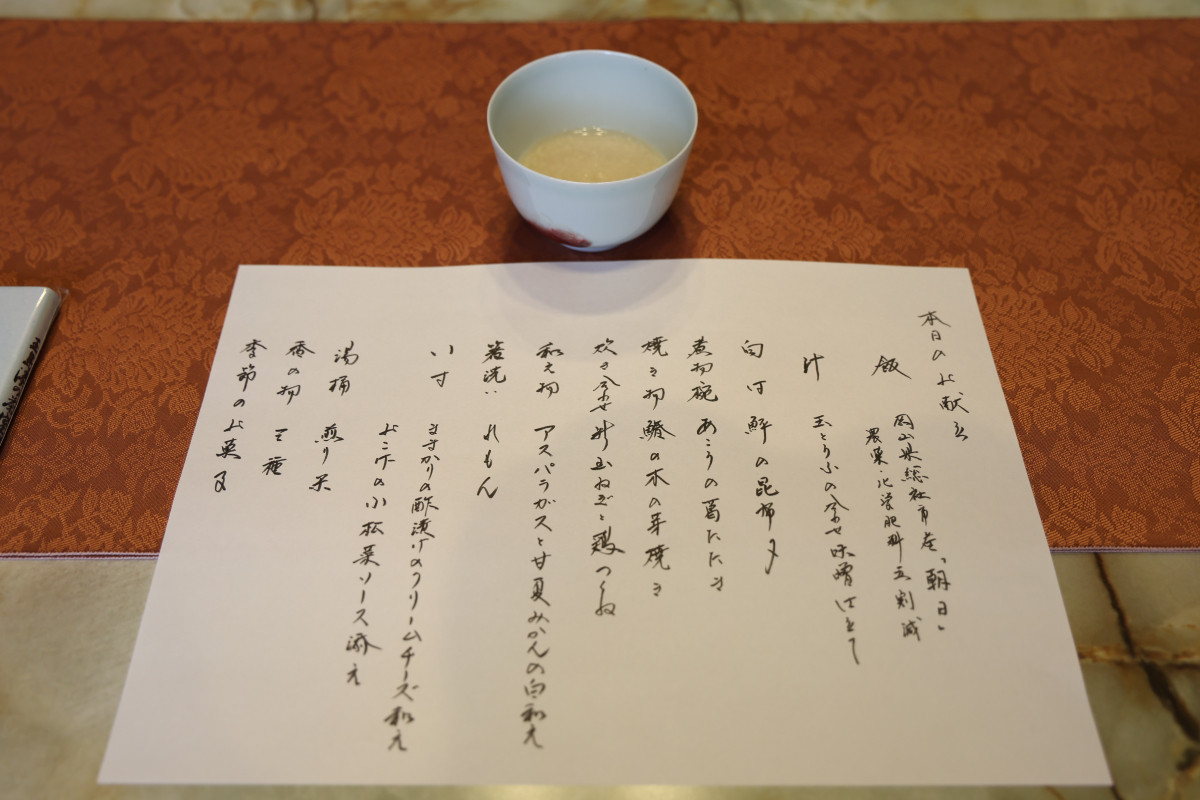 本日のお献立
飯 岡山県総社市産「朝日」
農薬・化学肥料五割減
汁 玉とうふの合わせ味噌仕立て
向付 鮃の昆布〆
煮物碗 あこうの葛たたき
焼き物 の木の芽焼き
炊き合わせ 新玉ねぎと鶏つくね
和え物 アスパラガスと甘夏みかんの白和え
箸洗い れもん
八寸 ままかりの酢漬けのクリームチーズ和え
の小松菜ソース添え
湯桶 煎り米
香の物 三種
季節のお菓子